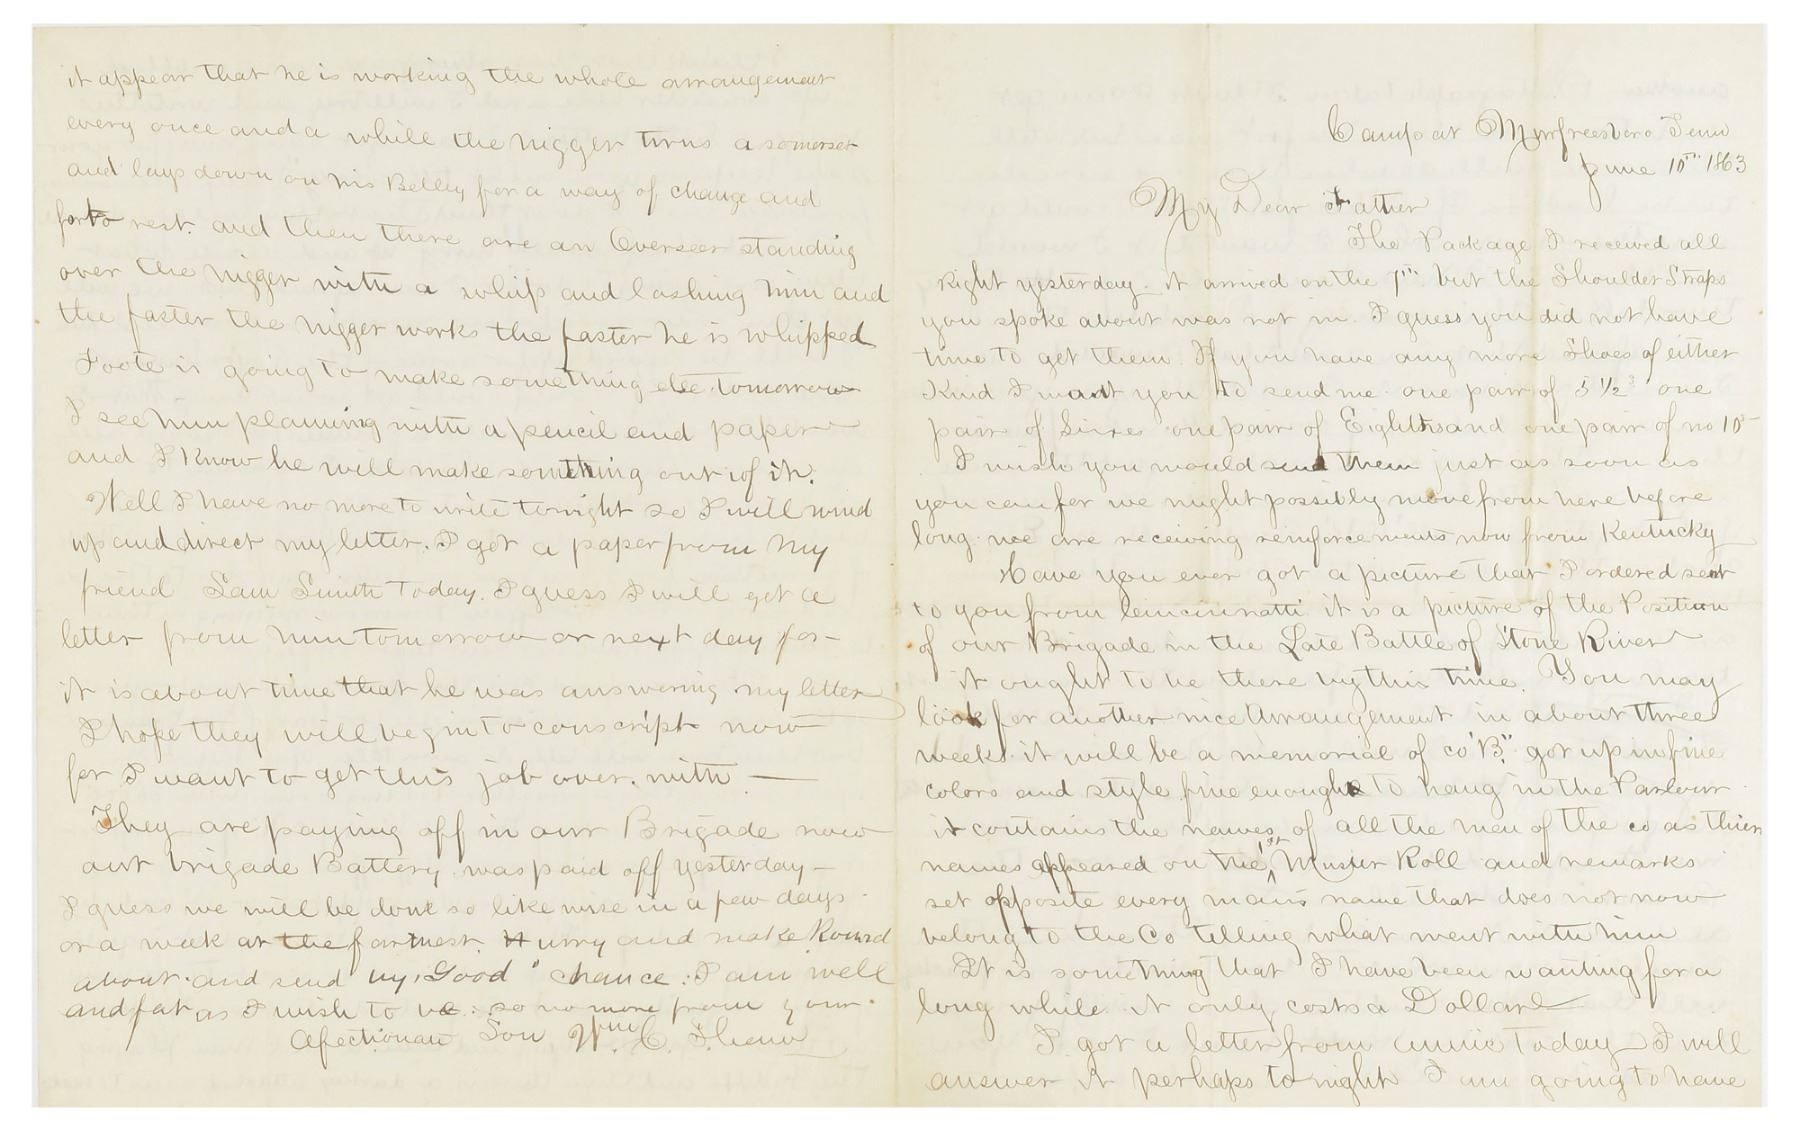 Camp at Murfreesboro Tenn
June 10th 1863
My Dear Father
The Package I received all
Right yesterday. it arrived on the 7th. but the Shoulder Straps
you spoke about was not in. I guess you did not have
time to get them. If you have any more Shoes of either
Kind I want you to send me one pair of 5 1/2s one
pair of Sixes one pair of Eights and one pair of no 10s
I wish you would send them just as soon as
you can for we might possibly move from here before
long. we are receiving reinforcements now from Kentucky
Have you ever got a picture that I ordered sent
to you from Cincinnatti it is a picture of the Position
of our Brigade in the Late Battle of Stone River
it ought to be there by this time. You may
look for another nice Arrangement in about three
weeks. it will be a memorial of co "B." got up in fine
colors and style fine enough to hang in the Parlour.
it contains the names of all the men of the co as thier
names appeared on the 1st Muster Roll and remarks
set opposite every man's name that does not now
belong to the Co telling what went with him
It is something that I have been wanting for a
long while. it only costs a Dollar
I got a letter from Annie Today I will
answer it perhaps to night I am going to have
it appear that he is working the whole arrangement
every once and a while the nigger turns a somerset
and lays down on his Belley for a way of change and
for to rest. and then there are an Overseer standing
over the nigger with a whip and lashing him and
the faster the nigger works the faster he is whipped
Foote is going to make something else tomorrow
I see him planning with a pencil and paper
and I Know he will make something out of it.
Well I have no more to write tonight so I will wind
up and direct my letter. I got a paper from my
friend Sam Smith Today. I guess I will get a
letter from him tomorrow or next day for
it is about time that he was answering my letter
I hope they will begin to conscript now
for I want to get this job over. with —
They are paying off in our Brigade now
our brigade Battery was paid off yesterday —
I guess we will be done so likewise in a few days
or a week at the farthest. Hurry and make Round
about. and send by "Good" chance: I am well
and fat as I wish to be: so no more from your.
Afectionate Son Wm C.